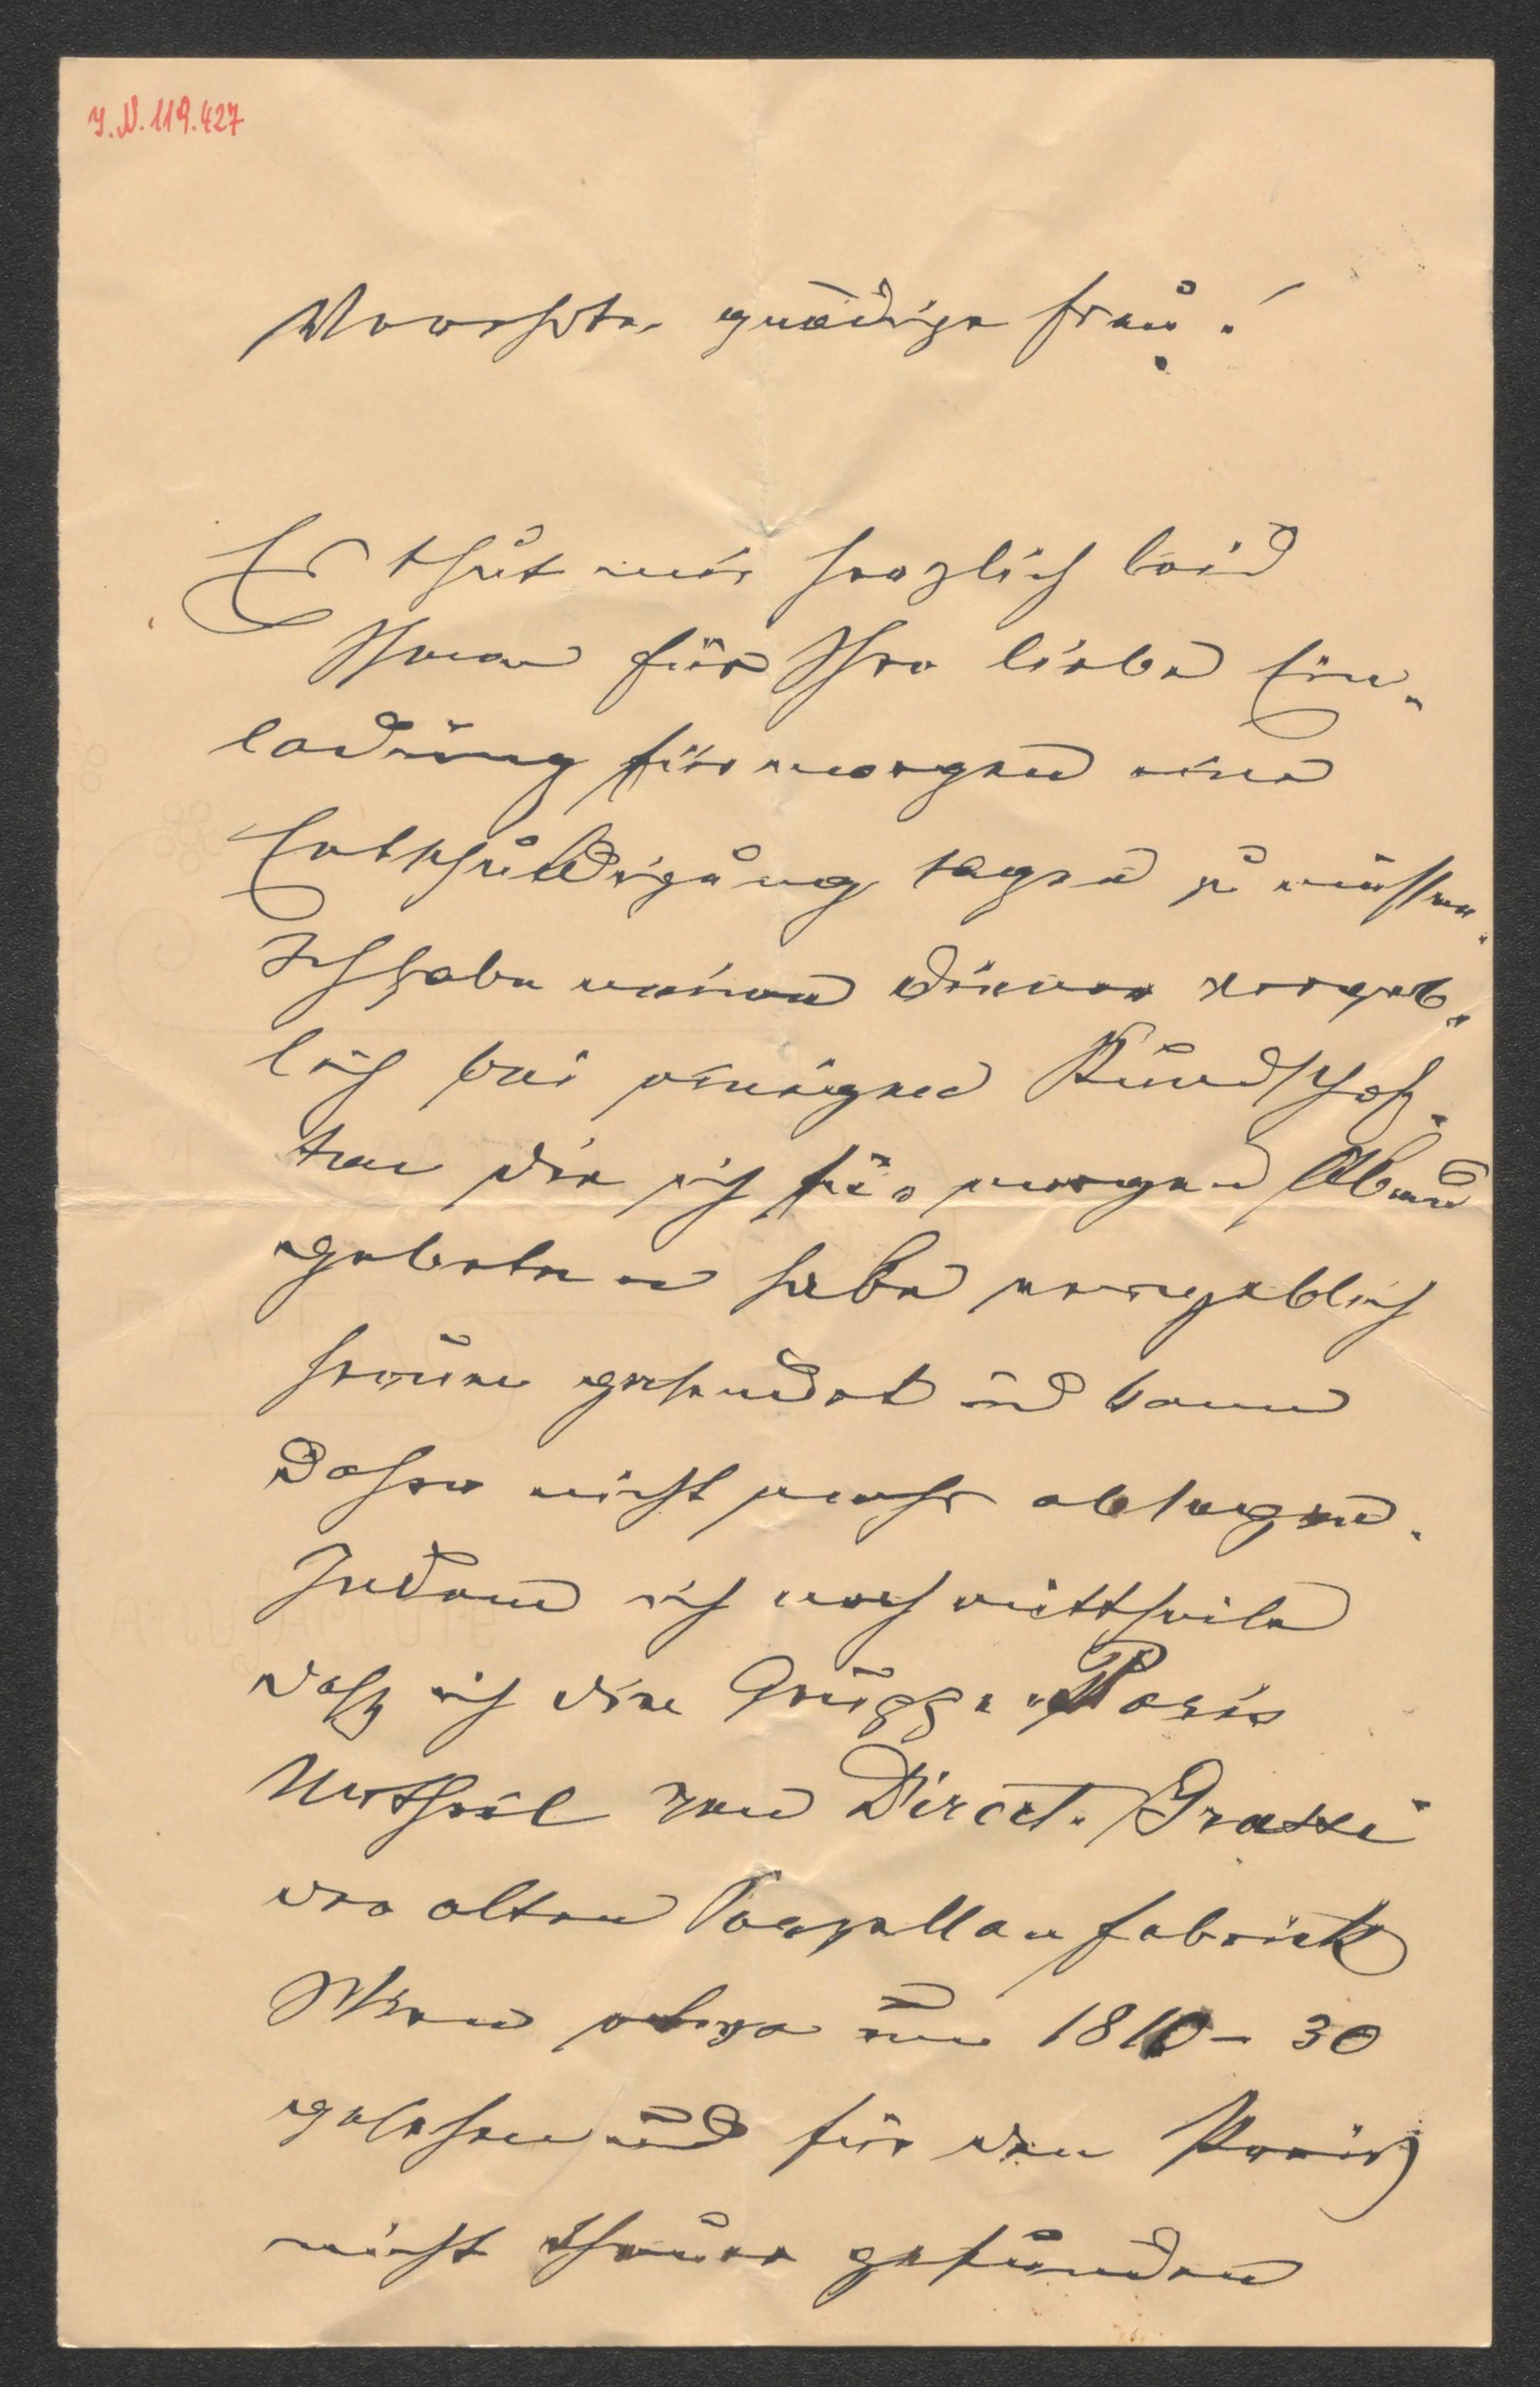 I.N. 119.427
Verehrte gnädige Frau!
Es thut mir herzlich leid
Ihnen für Ihre liebe Ein-
ladung für morgen eine
Entschuldigung sagen zu müssen.
Ich habe meinen Diener vergeb-
lich bei einigen Kundschaf-
ten die ich für morgen Abend
gebeten habe vergeblich
herum gesendet und kann
daher nicht mehr absagen.
Indem ich noch mittheile
daß ich die Gruppe Paris
Urtheil von Direct. Grassi
der alten Porzellanfabrick
Wien etwa um 1810-30
gesehen und für den Preis
nicht theuer gefunden